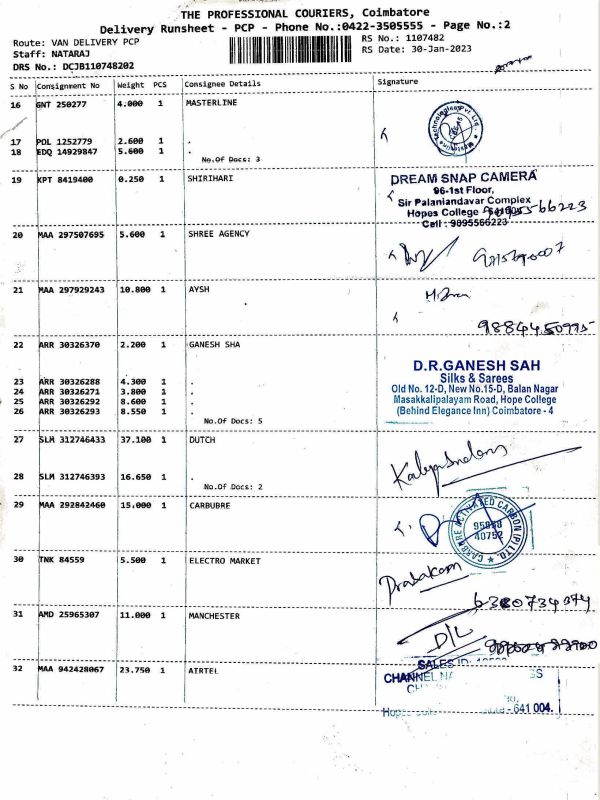 THE PROFESSIONAL COURIERS, Coimbatore
Delivery Runsheet - PCP - Phone No.:0422-3505555 - Page No.:2
Route: VAN DELIVERY PCP
RS No.: 1107482
Staff: NATARAJ
RS Date: 30-Jan-2023
DRS No.: DCJB110748202
S No Consignment No Weight PCS Consignee Details Signature
16 GNT 250277 4.000 1 MASTERLINE
17 POL 1252779 2.600 1 .
18 EDQ 14929847 5.600 1 .
No.Of Docs: 3
19 KPT 8419400 0.250 1 SHIRIHARI
DREAM SNAP CAMERA
96-1st Floor,
Sir Palaniandavar Complex
Hopes College
Cell : 9895566223
20 MAA 297507695 5.600 1 SHREE AGENCY
21 MAA 297929243 10.800 1 AYSH
9884450995
22 ARR 30326370 2.200 1 GANESH SHA
23 ARR 30326288 4.300 1 .
24 ARR 30326271 3.800 1 .
25 ARR 30326292 8.600 1 .
26 ARR 30326293 8.550 1 .
No.Of Docs: 5
D.R.GANESH SAH
Silks & Sarees
Old No. 12-D, New No.15-D, Balan Nagar
Masakkalipalayam Road, Hope College
(Behind Elegance Inn) Coimbatore - 4
27 SLM 312746433 37.100 1 DUTCH
28 SLM 312746393 16.650 1 .
No.Of Docs: 2
29 MAA 292842460 15.000 1 CARBUBRE
CARBURE ACTIVATED CARBON (P) LTD.
95980
40752
30 TNK 84559 5.500 1 ELECTRO MARKET
Prabakam
31 AMD 25965307 11.000 1 MANCHESTER
D/L
32 MAA 942428067 23.750 1 AIRTEL
SALES ID:
CHANNEL
- 641 004.